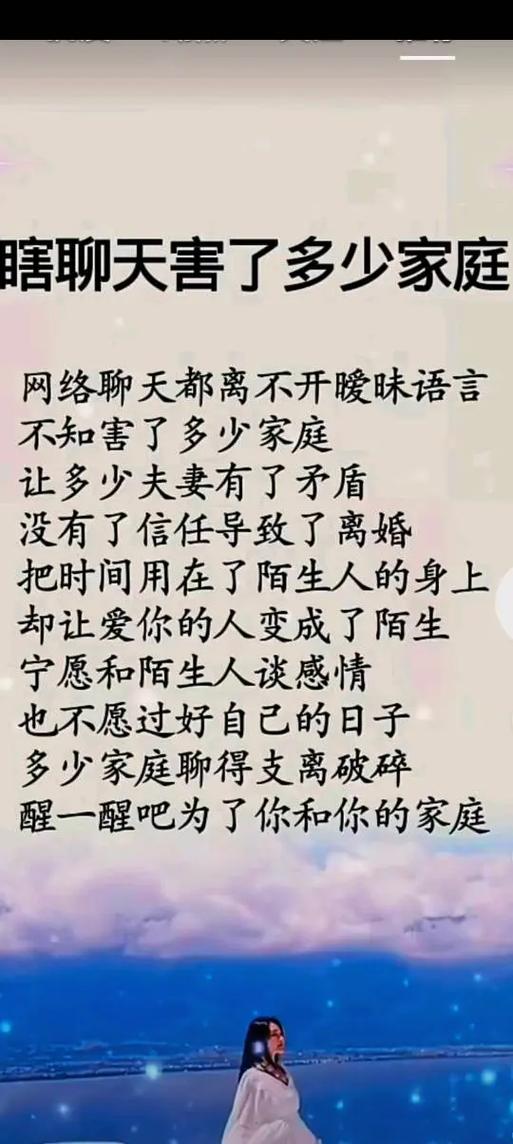 瞎聊天害了多少家庭
网络聊天都离不开暧昧语言
不知害了多少家庭
让多少夫妻有了矛盾
没有了信任导致了离婚
把时间用在了陌生人的身上
却让爱你的人变成了陌生
宁愿和陌生人谈感情
也不愿过好自己的日子
多少家庭聊得支离破碎
醒一醒吧为了你和你的家庭